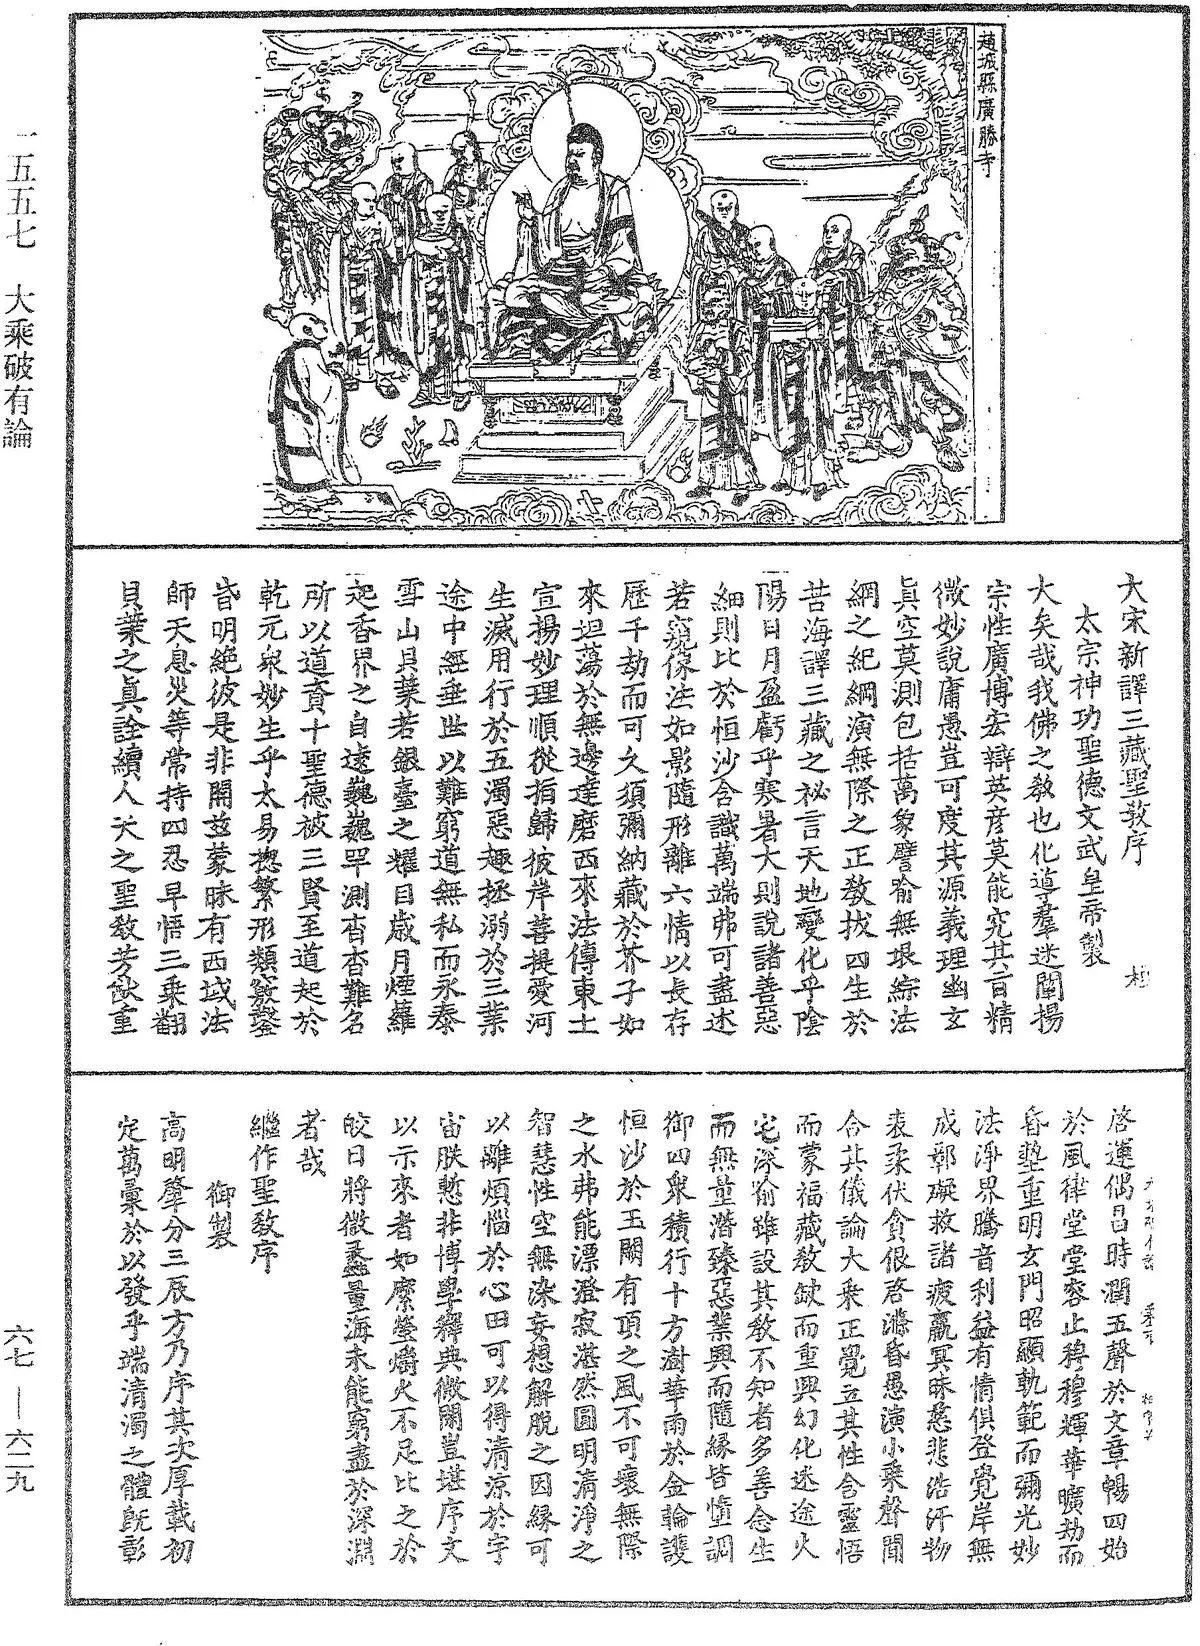 趙城縣廣勝寺
一五五七　大乘破有論
大宋新譯三藏聖敎序
太宗神功聖德文武皇帝製
大矣哉我佛之敎也化導羣迷闡揚
宗性廣博宏辯英彦莫能究其旨精
微妙說庸愚豈可度其源義理幽玄
眞空莫測包括萬象譬喻無垠綜法
網之紀綱演無際之正敎拔四生於
苦海譯三藏之祕言天地變化乎陰
陽日月盈虧乎寒暑大則說諸善惡
細則比於恒沙含識萬端弗可盡述
若窺像法如影隨形離六情以長存
歷千劫而可久須彌納藏於芥子如
來坦蕩於無邊達磨西來法傳東土
宣揚妙理順從指歸彼岸菩提愛河
生滅用行於五濁惡趣拯溺於三業
途中經垂世以難窮道無私而永泰
雪山貝葉若銀臺之耀目歲月煙蘿
起香界之自遠巍巍罕測杳杳難名
所以道資十聖德被三賢至道起於
乾元衆妙生乎太易揔繁形類竅鑿
昏明絕彼是非開茲蒙昧有西域法
師天息災等常持四忍早悟三乘翻
貝葉之眞詮續人天之聖敎芳猷重
啓運偶昌時潤五聲於文章暢四始
於風律堂堂容止穆穆輝華曠劫而
昏墊重明玄門昭顯軌範而彌光妙
法淨界騰音利益有情俱登覺岸無
成鄣礙救諸疲羸冥昧慈悲浩汗物
表柔伏貪佷啓滌昏愚演小乘聲聞
合其儀論大乘正覺立其性含靈悟
而蒙福藏敎缺而重興幻化迷途火
宅深喻雖設其敎不知者多善念生
而無量潛臻惡業興而隨緣皆墮調
御四衆積行十方澍華雨於金輪護
恒沙於玉闕有頂之風不可壞無際
之水弗能漂澄寂湛然圓明清淨之
智慧性空無染妄想解脫之因緣可
以離煩惱於心田可以得清涼於宇
宙朕慙非博學釋典微閑豈堪序文
以示來者如縻螢爝火不足比之於
皎日將微蠡量海未能窮盡於深淵
者哉
繼作聖敎序
御製
高明肇分三辰方乃序其次厚載初
定萬彙於以發乎端清濁之體旣彰
六七—六二九